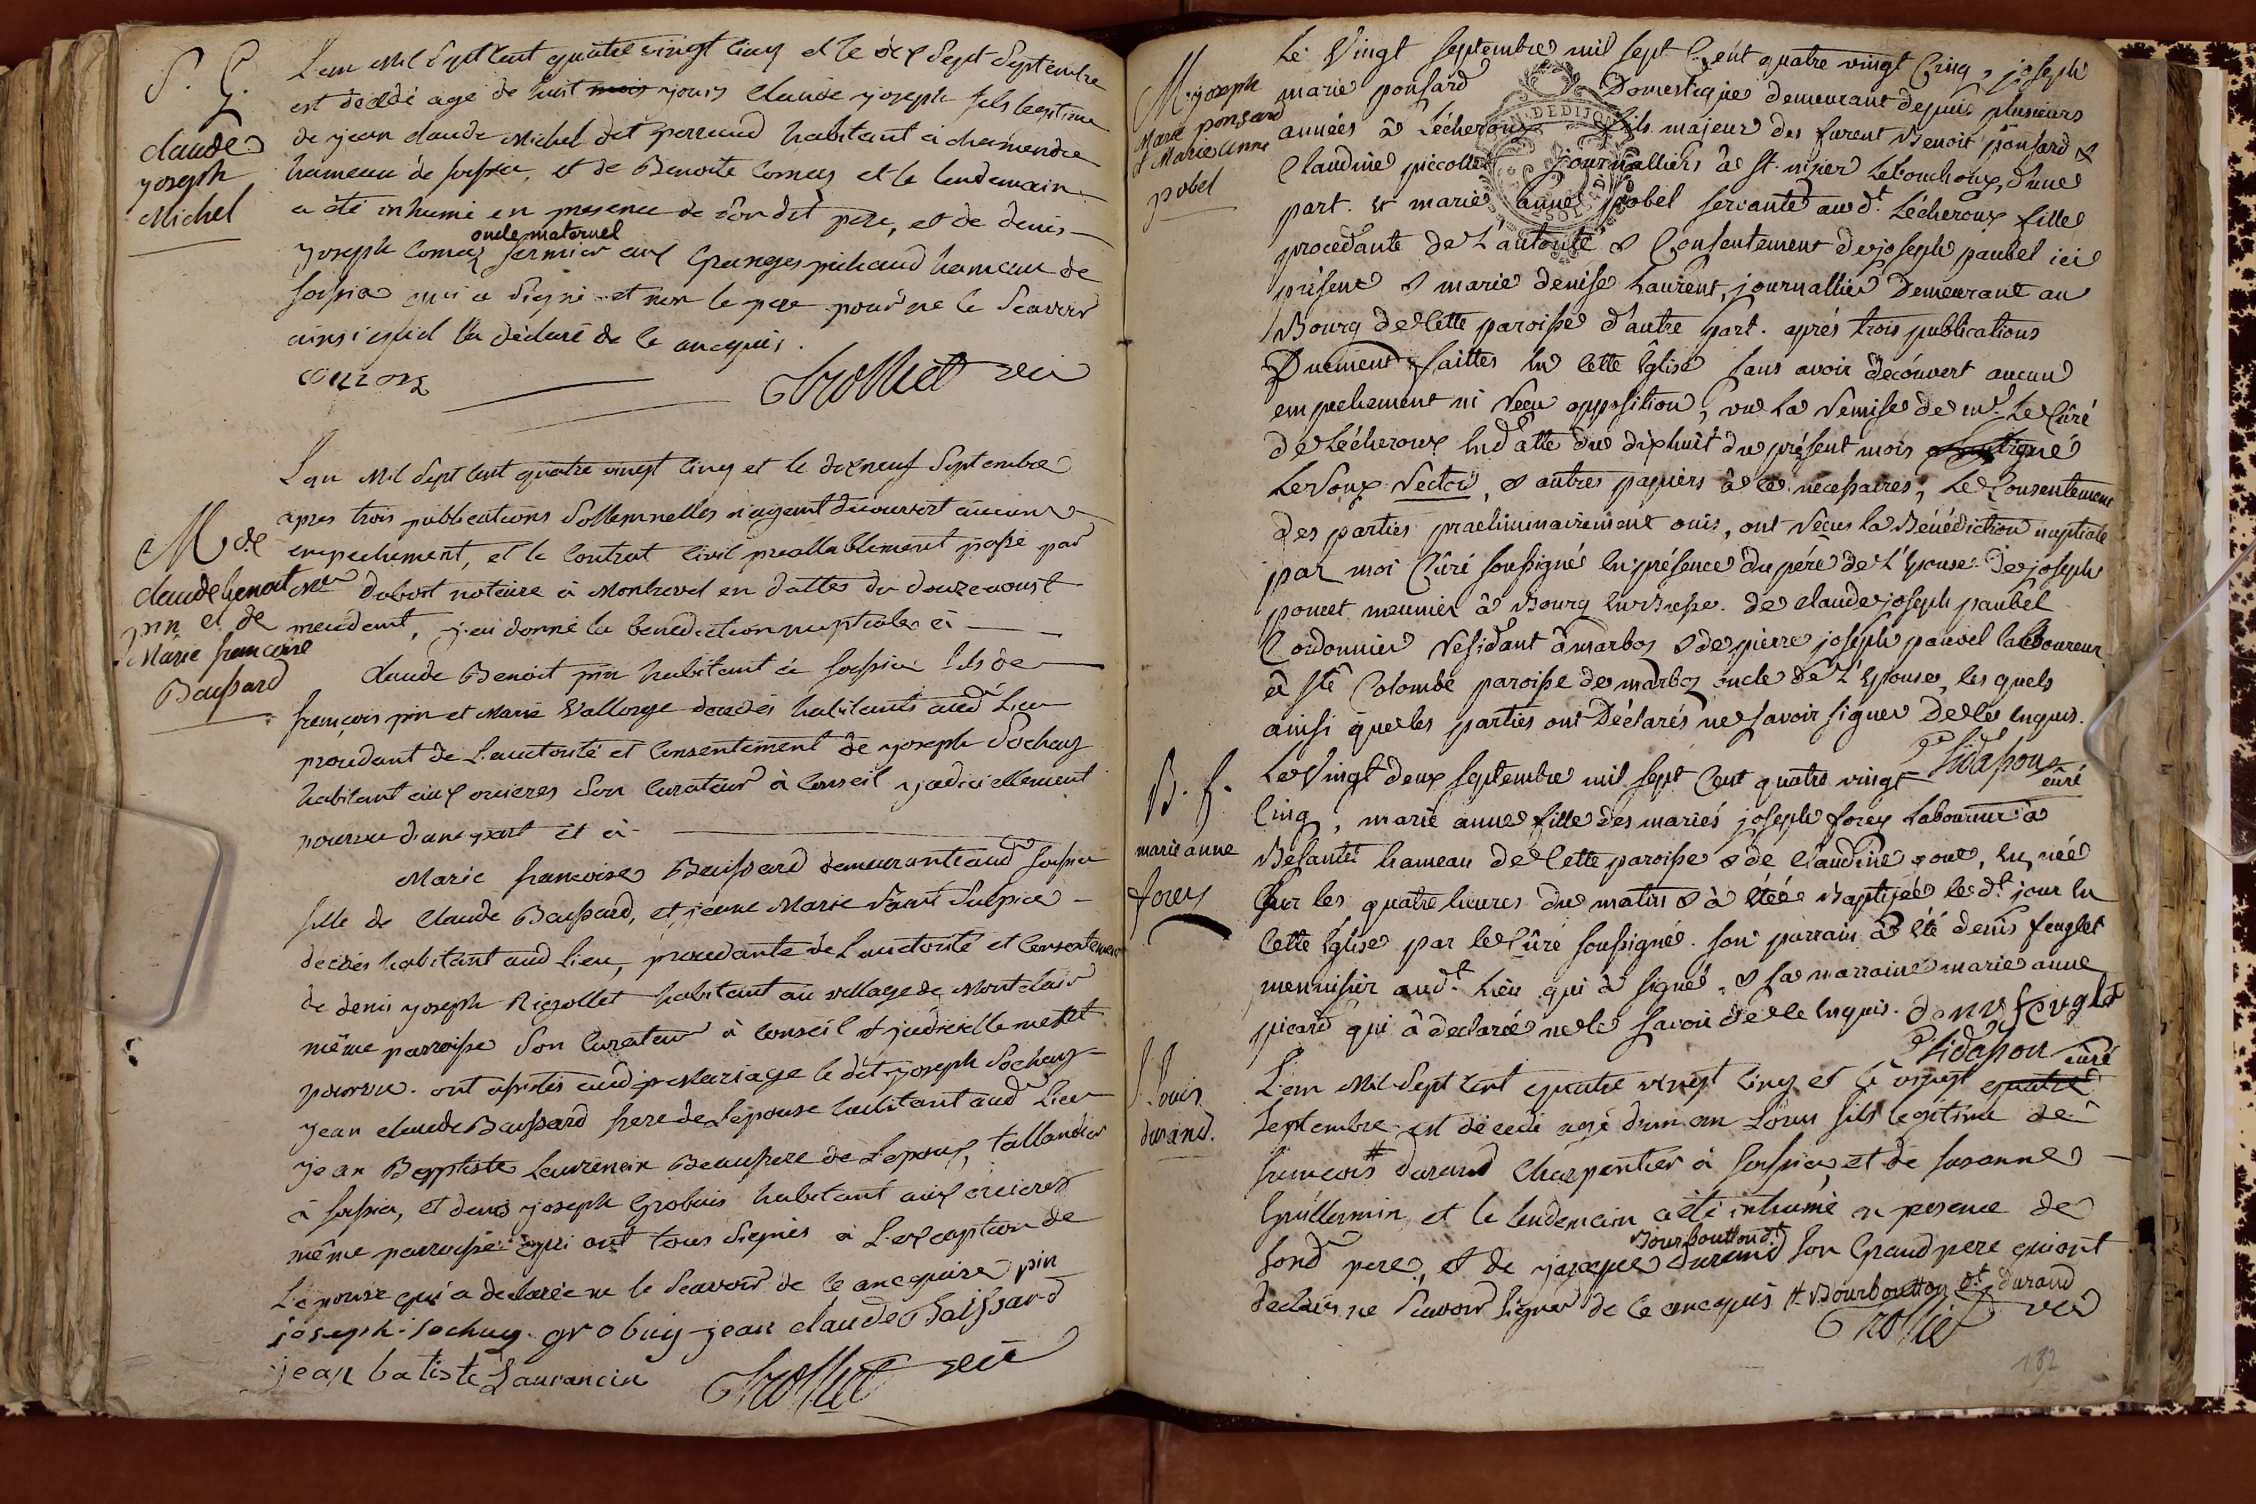 S. G.
claude
joseph
Michel
L'an Mil Sept Cent quatre vingt Cinq et le dix Sept Septembre
est décédé agé de huit mois jours Claude joseph fils legitime
de jean claude Michel dit perraud habitant à chamandre
hameau de foissia, et de Benoite Comas et le lendemain
a été inhumé en presence de son dit pere, et de denis
oncle maternel
joseph Comas fermier aux Granges pichaud hameau de
foissia qui a signé et non le pere pour ne le Scavoir
ainsi qu'il l'a déclaré de ce enquis.
Trolliet vic
M de
claude benoit
pin et de
Marie francoise
Baissard
L'an Mil Sept Cent quatre vingt Cinq et le dixneuf Septembre
apres trois publications Sollemnelles n'ayant découvert aucun
empechement, et le Contrat Civil preallablement passé par
Me dubost notaire à Montrevel en datte du douze aoust
precedent, j'ai donné la benediction nuptiale à
claude Benoit pin habitant à foissia fils de
françois pin et Marie Vallonge decedés habitants aud Lieu
procedant de L'authorité et Consentement de joseph Sochay
habitant aux orcieres Son Curateur à Conseil judiciellement
pourvu d'une part et à
Marie francoise Baissard demeurante aud foissia
fille de Claude Baissard, et jeanne Marie Saint Sulpice
decedés habitant aud lieu, procedante de L'authorité et Consentement
de denis joseph Rigollet habitant au village de Montclair
même parroisse Son Curateur à Conseil et judiciellement
pourvu. ont assistés aud mariage le dit joseph Sochay
jean claude Baissard frere de L'epouse habitant aud Lieu
jean Baptiste Laurencin Beaufrere de L'epoux, tallandier
à foissia, et denis joseph Grobuis habitant aux orcieres
même parroisse qui ont tous Signés à L'exception de
L'epouse qui a declarée ne le Scavoir de ce enquise pin
joseph. sochay. grobuy jean claude Baissard
jean batiste Laurancin Trolliet vic
M. joseph
Marie ponsard
& Marie Anne
pobel
Le Vingt septembre mil sept Cent quatre vingt Cinq, joseph
marie ponsard Domestique demeurant depuis plusieurs
années à Lécheroux fils majeur des furent Benoit ponsard &
Claudine piccollet journalliers à St. nizier Lebouchoux, d'une
part. & marie Anne pobel servante aud.t Lécheroux fille
procedante de L'autorité & Consentement de joseph paubel ici
présent & marie denise Laurent, journallier Demeurant au
Bourg de Cette paroisse d'autre part. après trois publications
Duement faittes en Cette Église sans avoir découvert aucun
empechement ni reçu opposition, vu La remise de mr. Le Curé
de Lécheroux en datte du dixhuit du présent mois
Leroux Rector, & autres papiers à ce necessaires, Le Consentement
des parties praeliminairement ouis, ont reçus la Bénédiction nuptiale
par moi Curé soussigné en présence du pére de L'Epouse de joseph
poncet meunier à Bourg en Bresse. de claude joseph paubel
Cordonnier résidant à marboz & de pierre joseph pauvel laboureur
à Ste Colombe paroisse de marboz oncle de L'Epouse, les quels
ainsi que les parties ont Déclarés ne savoir signer De ce enquis.
Pidasson
curé
B. f.
marie anne
forey
Le Vingt deux septembre mil sept Cent quatre vingt
Cinq, marie anne fille des mariés joseph forey Laboureur à
Besantet hameau de Cette paroisse & de Claudine pont, en, née
sur les quatre heures du matin & à étée Baptisée led.t jour en
Cette Eglise par le Curé soussigné. son parrain à été denis feuglet
mennisier aud.t Lieu qui à signé, & sa marraine marie anne
picard qui à declarée ne le savoir de ce enquis. denis feuglet
Pidasson curé
S. Louis
durand.
L'an Mil Sept Cent quatre vingt Cinq et le vingt quatre
Septembre est décédé agé d'un an Louis fils legitime de
francois # durand Charpentier à foissia, et de Susanne
Guillermin, et le lendemain a été inhumé en presence de
Bourboutton dt
Sond pere, et de jacques durand Son Grand pere qui ont
declarés ne Scavoir Signer de ce enquis # Bourboutton dt durand
Trolliet vic
182